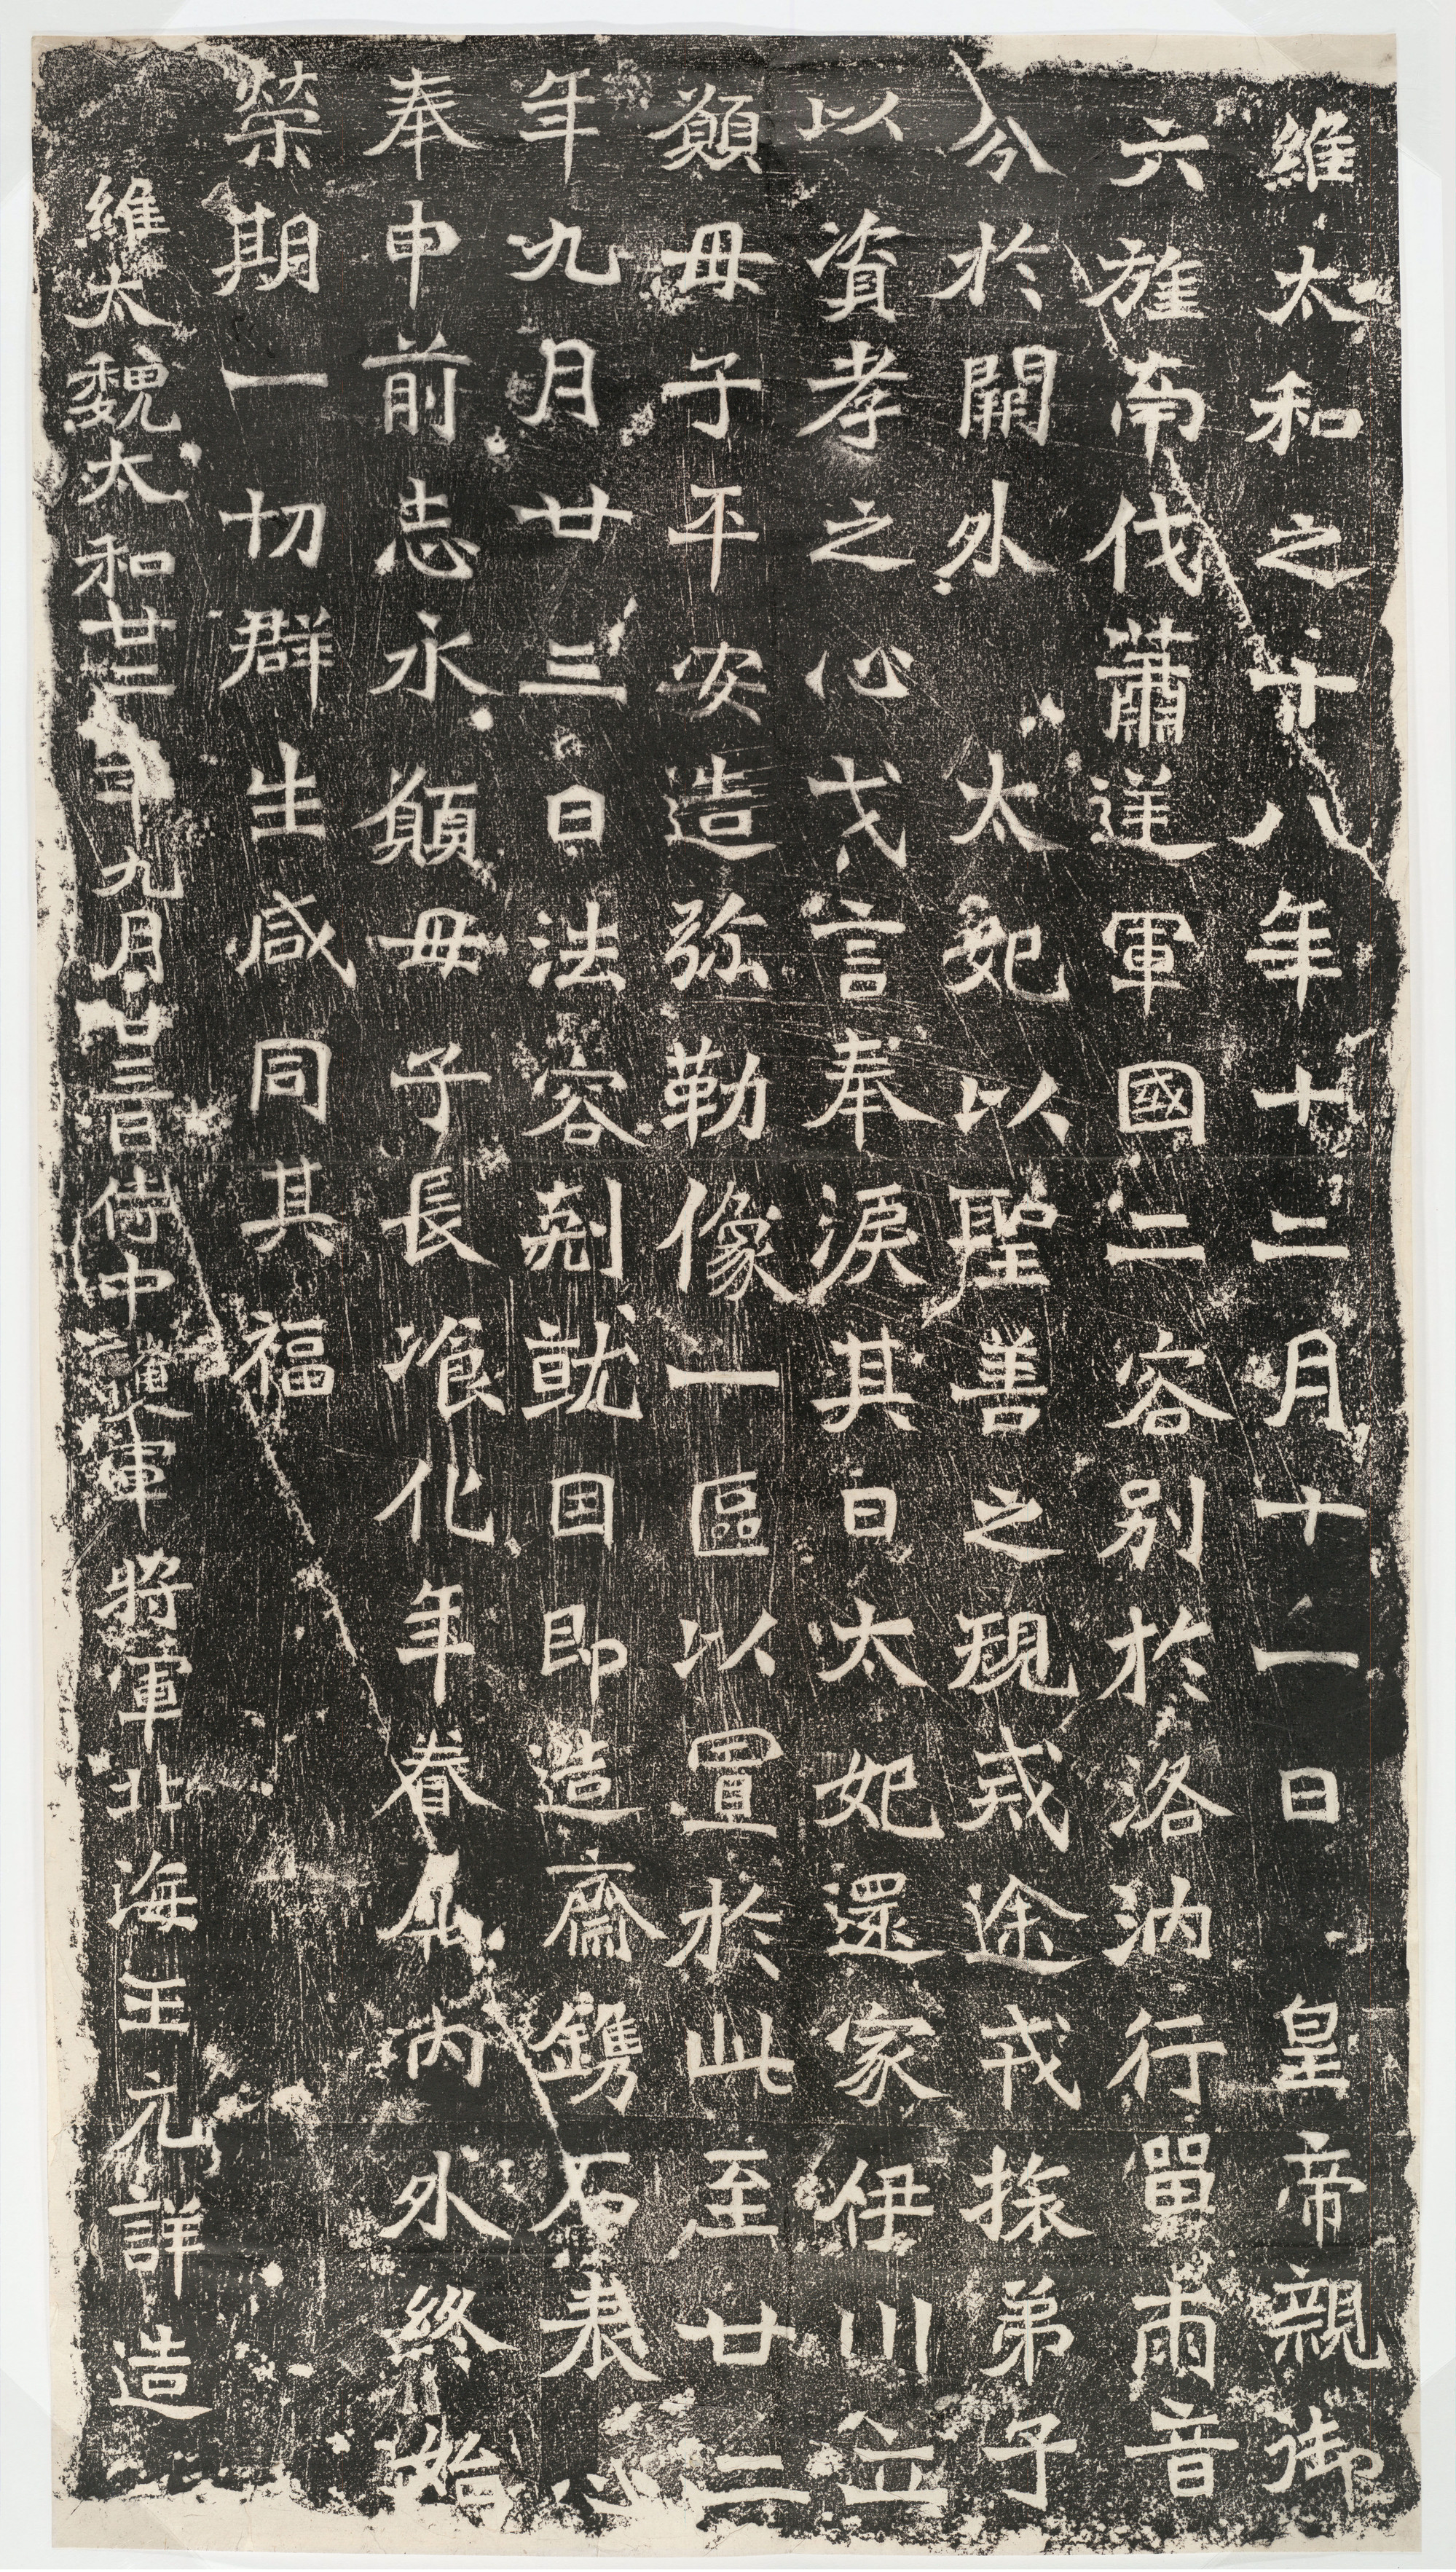 維太和之十八年十二月十一日皇帝親御
六旌南伐蕭逆軍國二容別於洛汭行留兩音
分於闕外太妃以聖善之規戒途戎旅弟子
以資孝之心戈言奉淚其日太妃還家伊川立
願母子平安造弥勒像一區以置於此至廿二
年九月廿三日法容剋就因即造齋鐫石表
奉申前志永願母子長飡化年眷属內外終始
榮期一切群生咸同其福
維太魏太和廿二年九月廿三日侍中護軍將軍北海王元詳造